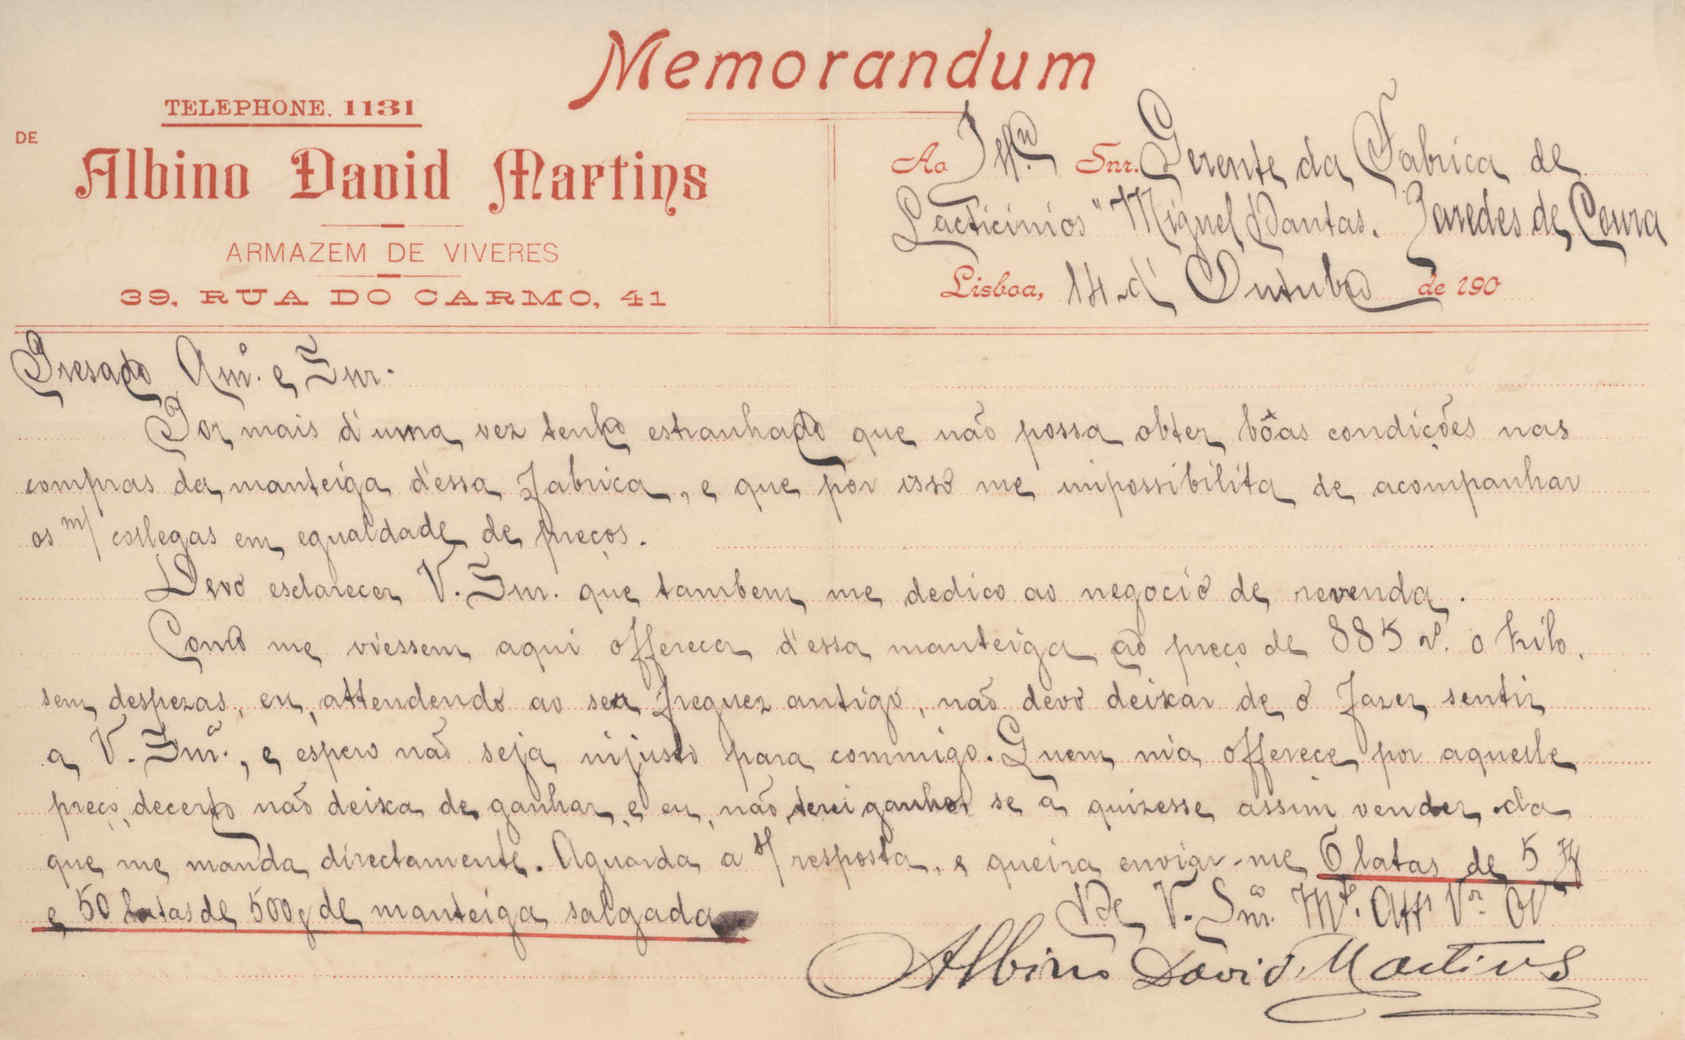 Memorandum
TELEPHONE. 1131
DE
Albino David Martins
ARMAZEM DE VIVERES
39, RUA DO CARMO, 41
Ao Illmo Snr. Gerente da Fabrica de
Lacticinios "Miguel Dantas. Paredes de Coura
Lisboa, 14 d' Outubro de 190
Presado Amº. e Snr.
Por mais d'uma vez tenho estranhado que não possa obter bôas condições nas
compras da manteiga d'essa fabrica, e que por isso me impossibilita de acompanhar
os m/ collegas em egualdade de preços.
Devo esclarecer V. Snr. que tambem me dedico ao negocio de revenda.
Como me viessem aqui offerecer d'essa manteiga ao preço de 885 rs. o kilo,
sem despezas, eu, attendendo ao seu freguez antigo, não devo deixar de o fazer sentir
a V. Snrª., e espero não seja injusto para commigo. Quem m'a offerece por aquelle
preço, decerto não deixa de ganhar, e eu, não terei ganho se a quizesse assim vender da
que me manda directamente. Aguarda a s/ resposta, e queira enviar-me 6 latas de 5 K
e 50 latas de 500g de manteiga salgada
De V. Snrª. Mtº. Attº Vor
Albino David Martins